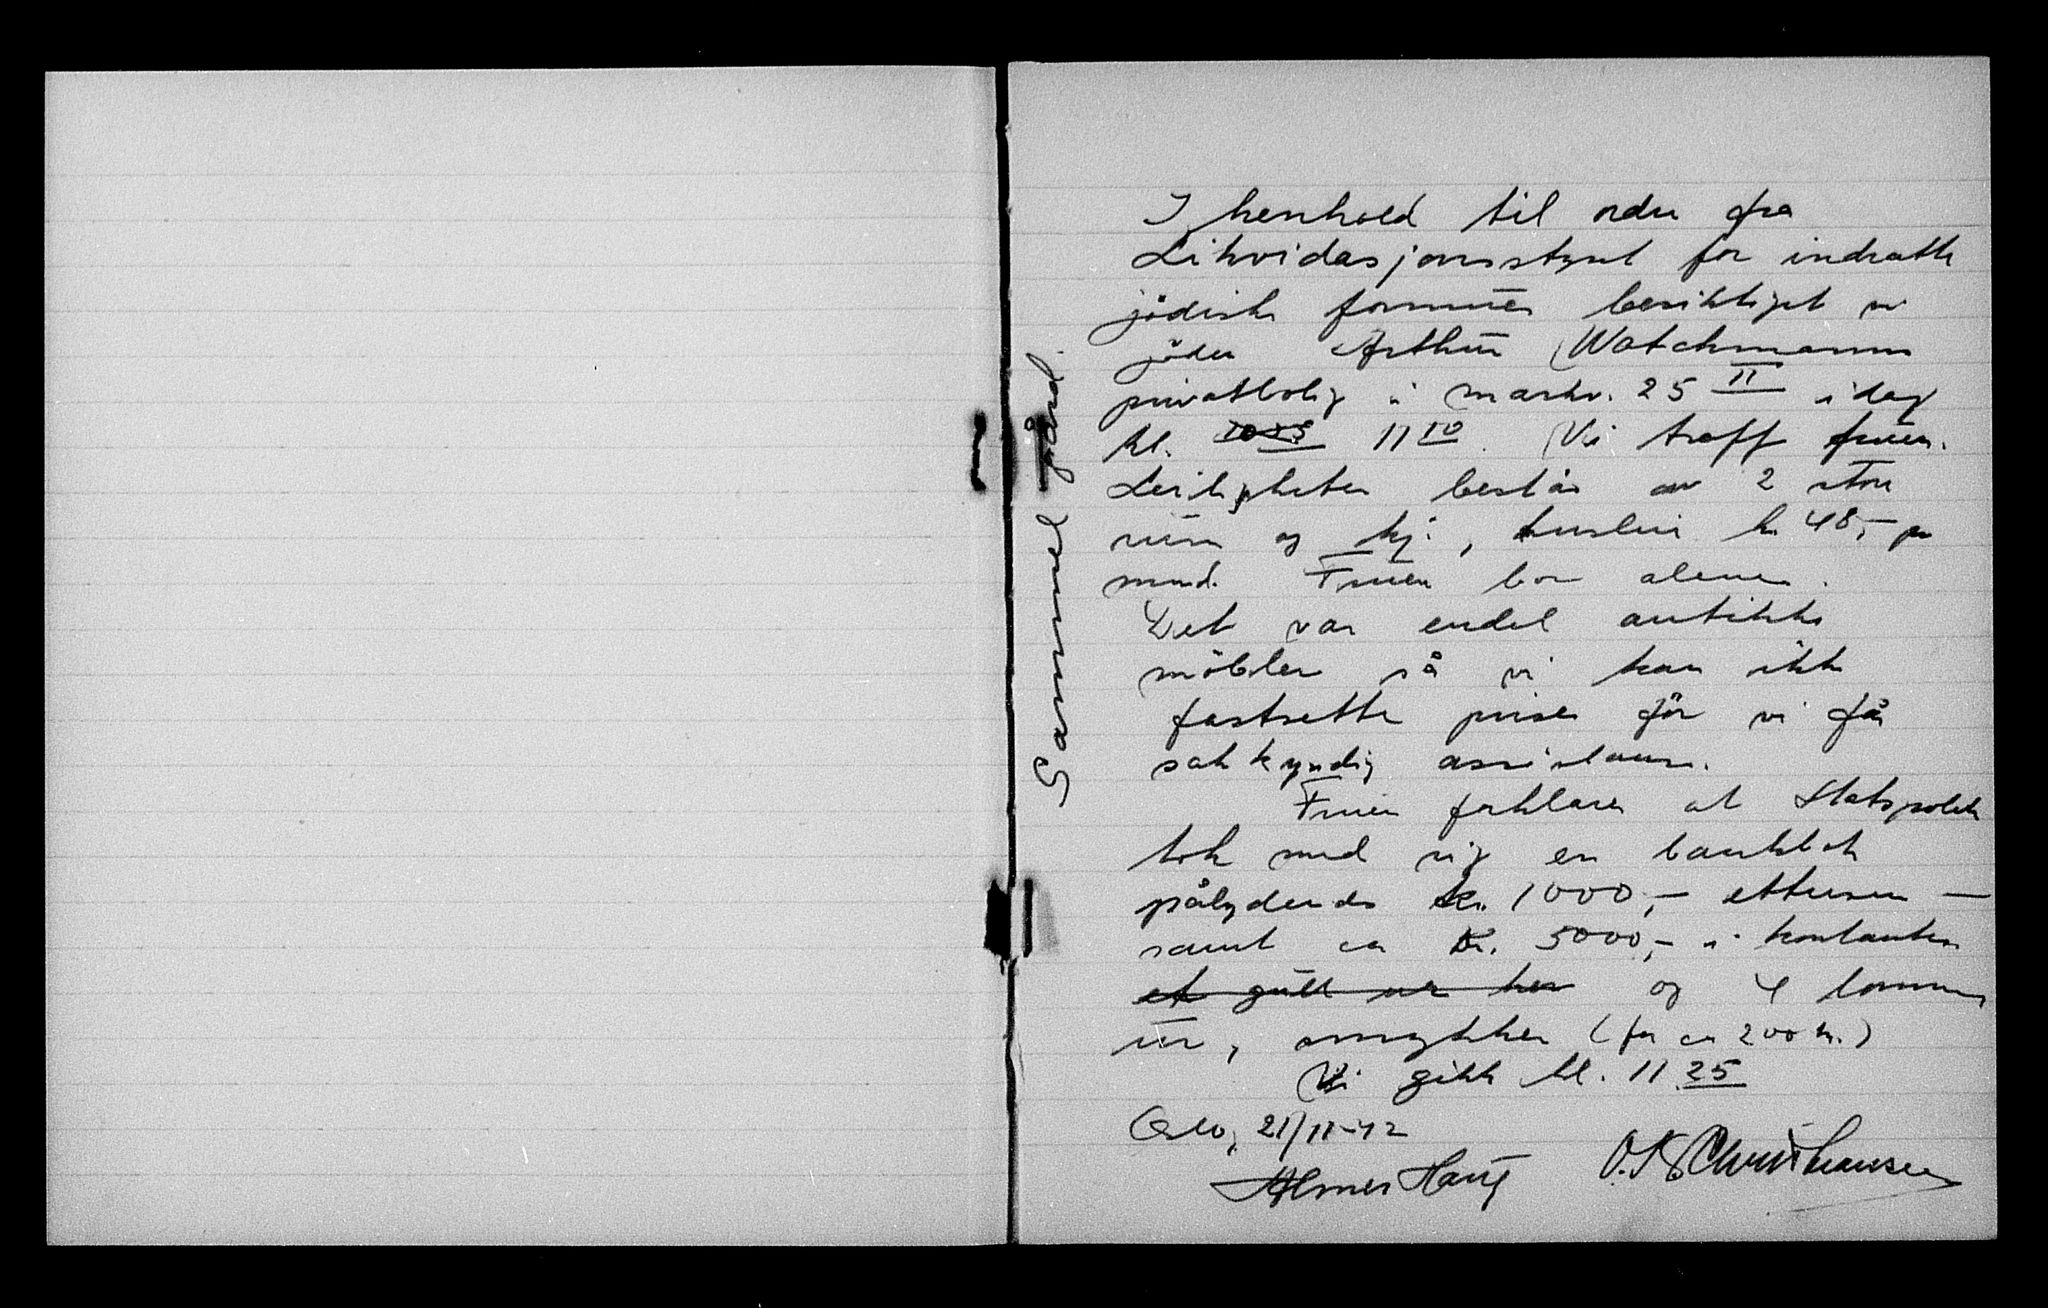 I henhold til ordre fra
Likvidasjonsstyret for inndratte
jødiske formuer besiktiget vi
jøden Arthur Watchmanns
privatbolig i Markv. 25 II idag
kl. 10 25 11 10. Vi traff fruen.
Leiligheten består av 2 store
rum og kj., husleie kr. 48,- pr
mnd. Fruen bor alene.
Det var endel antikke
möbler så vi kan ikke
fastsette prisen för vi får
sakkyndig assistanse.
Fruen forklarer at Statspolitiet
tok med sig en bankbok
pålydende kr. 1000,- ettusen —
samt ca kr. 5000,- i kontanter
et gull ur her og 4 lomme
ur, smykker (for ca 200 kr.)
Vi gikk kl. 11 25
Oslo, 21/11-42
Haug O. Christiansen
Gammel gård.